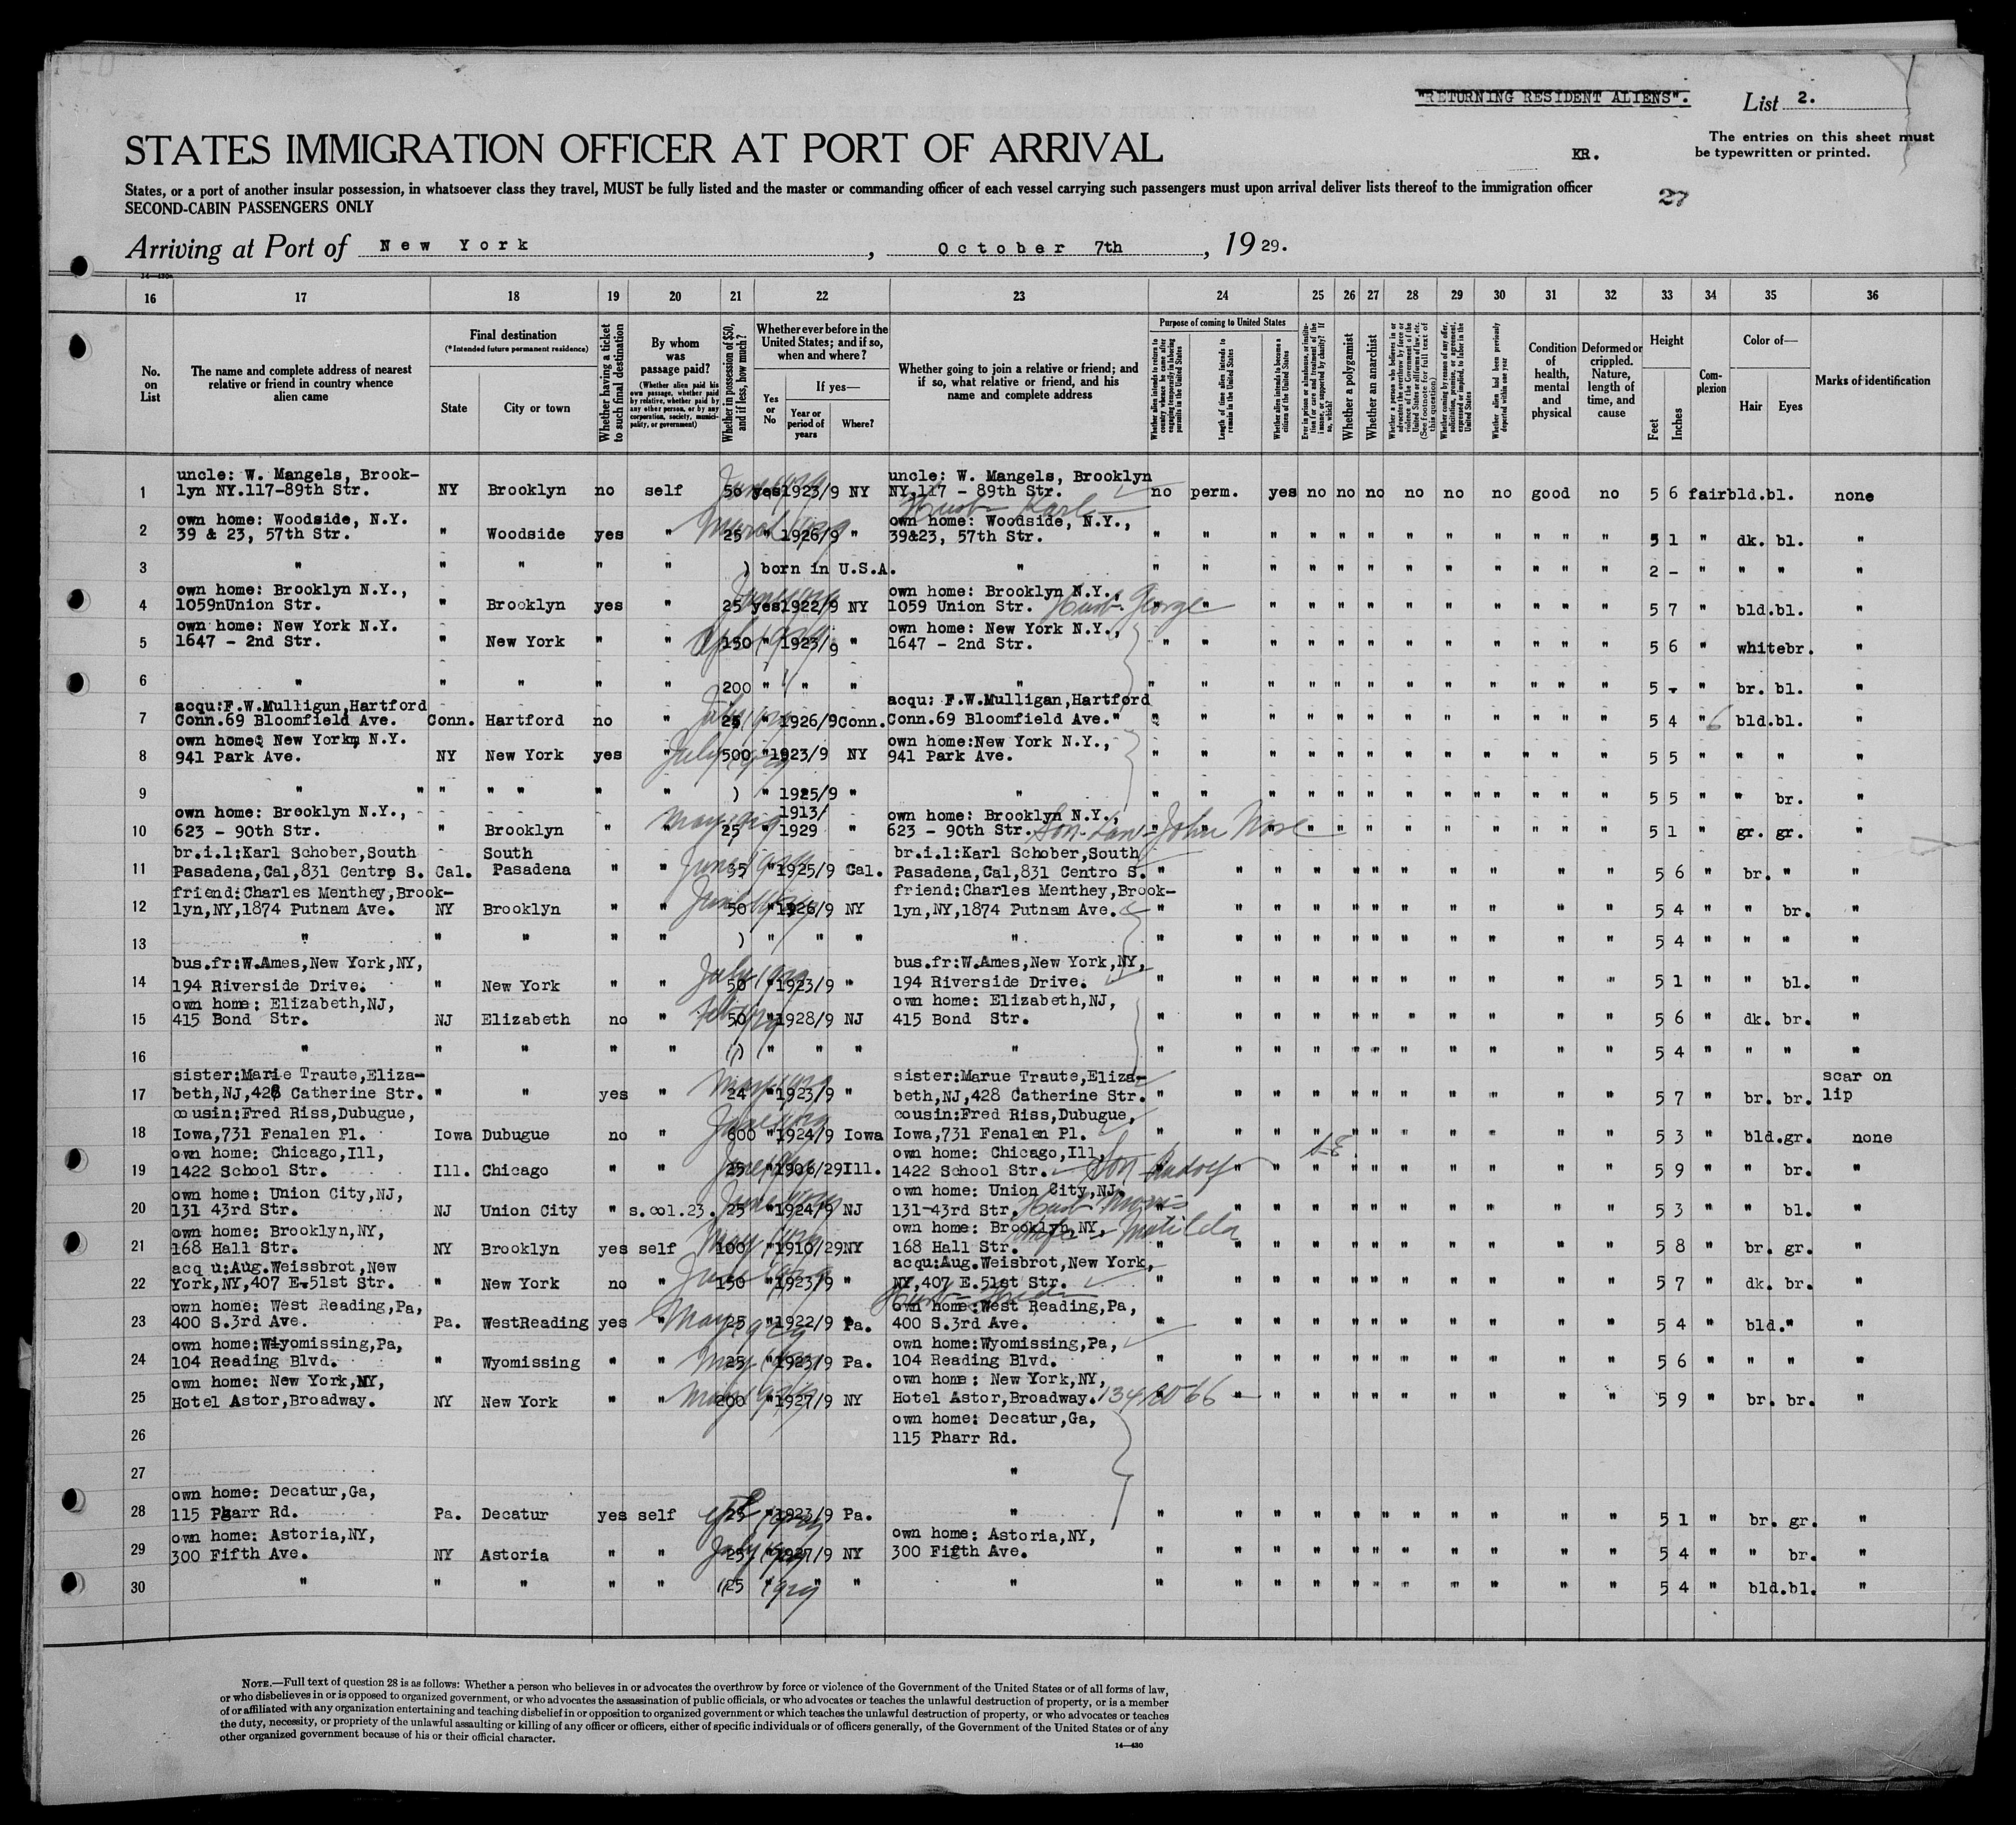 "RETURNING RESIDENT ALIENS".
List 2.
STATES IMMIGRATION OFFICER AT PORT OF ARRIVAL
KR.
The entries on this sheet must
be typewritten or printed.
States, or a port of another insular possession, in whatsoever class they travel, MUST be fully listed and the master or commanding officer of each vessel carrying such passengers must upon arrival deliver lists thereof to the immigration officer
SECOND-CABIN PASSENGERS ONLY
27
Arriving at Port of New York, October 7th, 1929.
14-430
16 17 18 19 20 21 22 23 24 25 26 27 28 29 30 31 32 33 34 35 36
No. on List
The name and complete address of nearest relative or friend in country whence alien came
Final destination
(*Intended future permanent residence)
State
City or town
Whether having a ticket to such final destination
By whom was passage paid?
(Whether alien paid his own passage, whether paid by relative, whether paid by any other person, or by any corporation, society, municipality, or government)
Whether in possession of $50, and if less, how much?
Whether ever before in the United States; and if so, when and where?
Yes or No
If yes—
Year or period of years
Where?
Whether going to join a relative or friend; and if so, what relative or friend, and his name and complete address
Purpose of coming to United States
Whether alien intends to return to country whence he came after engaging temporarily in laboring pursuits in the United States
Length of time alien intends to remain in the United States
Whether alien intends to become a citizen of the United States
Ever in prison or almshouse, or institution for care and treatment of the insane, or supported by charity? If so, which?
Whether a polygamist
Whether an anarchist
Whether a person who believes in or advocates the overthrow by force or violence of the Government of the United States or all forms of law, etc. (See footnote for full text of this question)
Whether coming by reason of any offer, solicitation, promise, or agreement, expressed or implied, to labor in the United States
Whether alien had been previously deported within one year
Condition of health, mental and physical
Deformed or crippled. Nature, length of time, and cause
Height
Feet
Inches
Complexion
Color of—
Hair
Eyes
Marks of identification
1 uncle: W. Mangels, Brook-
lyn NY.117-89th Str. NY Brooklyn no self 50 yes 1923/9 NY uncle: W. Mangels, Brooklyn
NY,117 - 89th Str. no perm. yes no no no no no no good no 5 6 fair bld. bl. none
Husb- Karl
2 own home: Woodside, N.Y.
39 & 23, 57th Str. " Woodside yes " 25 " 1926/9 " own home: Woodside, N.Y.,
39&23, 57th Str. " " " " " " " " " " " " 5 1 " dk. bl. "
3 " " " " " ) born in U.S.A. " " " " " " " " " " " " " 2 - " " " "
4 own home: Brooklyn N.Y.,
1059nUnion Str. " Brooklyn yes " 25 yes 1922/9 NY own home: Brooklyn N.Y.,
1059 Union Str. Husb- George " " " " " " " " " " " " 5 7 " bld. bl. "
5 own home: New York N.Y.
1647 - 2nd Str. " New York " " 150 " 1923/9 " own home: New York N.Y.,
1647 - 2nd Str. " " " " " " " " " " " " 5 6 " white br. "
6 " " " " " 200 " " " " " " " " " " " " " " " " 5 - " br. bl. "
7 acqu:F.W.Mulligun,Hartford
Conn.69 Bloomfield Ave. Conn. Hartford no " 25 " 1926/9 Conn. acqu: F.W.Mulligan,Hartford
Conn.69 Bloomfield Ave." " " " " " " " " " " " " 5 4 " bld. bl. "
8 own home: New York, N.Y.
941 Park Ave. NY New York yes " 500 " 1923/9 NY own home:New York N.Y.,
941 Park Ave. " " " " " " " " " " " " 5 5 " " " "
9 " " " " " " " ) " 1925/9 " " " " " " " " " " " " " " 5 5 " " br. "
10 own home: Brooklyn N.Y.,
623 - 90th Str. " Brooklyn " " 25 " 1913/
1929 " own home: Brooklyn N.Y.,
623 - 90th Str. Son-Law- John " " " " " " " " " " 5 1 " gr. gr. "
11 br.i.l:Karl Schober,South
Pasadena,Cal,831 Centro S. Cal. South
Pasadena " " 35 " 1925/9 Cal. br.i.l:Karl Schober,South
Pasadena,Cal,831 Centro S. " " " " " " " " " " " 5 6 " br. " "
12 friend:Charles Menthey,Brook-
lyn,NY,1874 Putnam Ave. NY Brooklyn " " 50 " 1926/9 NY friend:Charles Menthey,Brook-
lyn,NY,1874 Putnam Ave. " " " " " " " " " " " 5 4 " " br. "
13 " " " " " ) " " " " " " " " " " " " " " " 5 4 " " " "
14 bus.fr:W.Ames,New York,NY,
194 Riverside Drive. " New York " " 50 " 1923/9 " bus.fr:W.Ames,New York,NY,
194 Riverside Drive. " " " " " " " " " " " 5 1 " " bl. "
15 own home: Elizabeth,NJ,
415 Bond Str. NJ Elizabeth no " 50 " 1928/9 NJ own home: Elizabeth,NJ,
415 Bond Str. " " " " " " " " " " " 5 6 " dk. br. "
16 " " " " " ) " " " " " " " " " " " " " " " 5 4 " " " "
17 sister:Marie Traute,Eliza-
beth,NJ,428 Catherine Str. " " yes " 24 " 1923/9 " sister:Marue Traute,Eliza-
beth,NJ,428 Catherine Str. " " " " " " " " " " " 5 7 " br. br. scar on
lip
18 cousin:Fred Riss,Dubugue,
Iowa,731 Fenalen Pl. Iowa Dubugue no " 600 " 1924/9 Iowa cousin:Fred Riss,Dubugue,
Iowa,731 Fenalen Pl. " " " " " " " " " " " 5 3 " bld. gr. none
19 own home: Chicago,Ill,
1422 School Str. Ill. Chicago " " 25 " 1906/29 Ill. own home: Chicago,Ill,
1422 School Str. Son Rudolf " " " " " " " " " " " 5 9 " " br. "
20 own home: Union City,NJ,
131 43rd Str. NJ Union City " s.col.23. 25 " 1924/9 NJ own home: Union City,NJ.
131-43rd Str. Husb Morris " " " " " " " " " " 5 3 " " bl. "
21 own home: Brooklyn,NY,
168 Hall Str. NY Brooklyn yes self 100 " 1910/29 NY own home: Brooklyn,NY,
168 Hall Str. wife - Matilda " " " " " " " " " " " 5 8 " br. gr. "
22 acq u:Aug.Weissbrot,New
York,NY,407 E.51st Str. " New York no " 150 " 1923/9 " acqu:Aug.Weisbrot,New York,
NY,407 E.51st Str. " " " " " " " " " " " 5 7 " dk. br. "
23 own home: West Reading,Pa,
400 S.3rd Ave. Pa. WestReading yes " 25 " 1922/9 Pa. own home:West Reading,Pa,
400 S.3rd Ave. " " " " " " " " " " " 5 4 " bld. " "
24 own home:Wyomissing,Pa,
104 Reading Blvd. " Wyomissing " " 25 " 1923/9 Pa. own home:Wyomissing,Pa,
104 Reading Blvd. " " " " " " " " " " " 5 6 " " " "
25 own home: New York,NY,
Hotel Astor,Broadway. NY New York " " 200 " 1927/9 NY own home: New York,NY,
Hotel Astor,Broadway. 134 W 66 " " " " " " " " " " " 5 9 " br. br. "
26 own home: Decatur,Ga,
115 Pharr Rd.
27 "
28 own home: Decatur,Ga,
115 Pharr Rd. Pa. Decatur yes self 25 " 1923/9 Pa. " " " " " " " " " " " " " 5 1 " br. gr. "
29 own home: Astoria,NY,
300 Fifth Ave. NY Astoria " " 25 " 1927/9 NY own home: Astoria,NY,
300 Fifth Ave. " " " " " " " " " " " 5 4 " " br. "
30 " " " " " 25 " " " " " " " " " " " " " " " 5 4 " bld. bl. "
NOTE.—Full text of question 28 is as follows: Whether a person who believes in or advocates the overthrow by force or violence of the Government of the United States or of all forms of law,
or who disbelieves in or is opposed to organized government, or who advocates the assassination of public officials, or who advocates or teaches the unlawful destruction of property, or is a member
of or affiliated with any organization entertaining and teaching disbelief in or opposition to organized government or which teaches the unlawful destruction of property, or who advocates or teaches
the duty, necessity, or propriety of the unlawful assaulting or killing of any officer or officers, either of specific individuals or of officers generally, of the Government of the United States or of any
other organized government because of his or their official character.
14—430